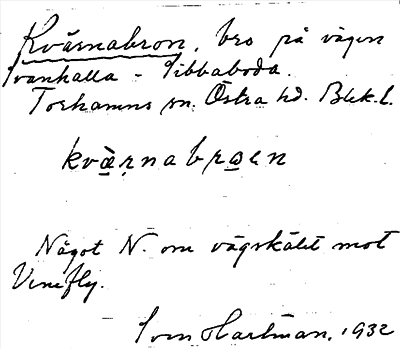 Kvärnabron, bro på vägen
Svanhalla - Sibbaboda.
Torhamns sn. Östra hd. Blek. l.
kvärnabroen
Något N. om vägskälet mot
Sven Hartman, 1932